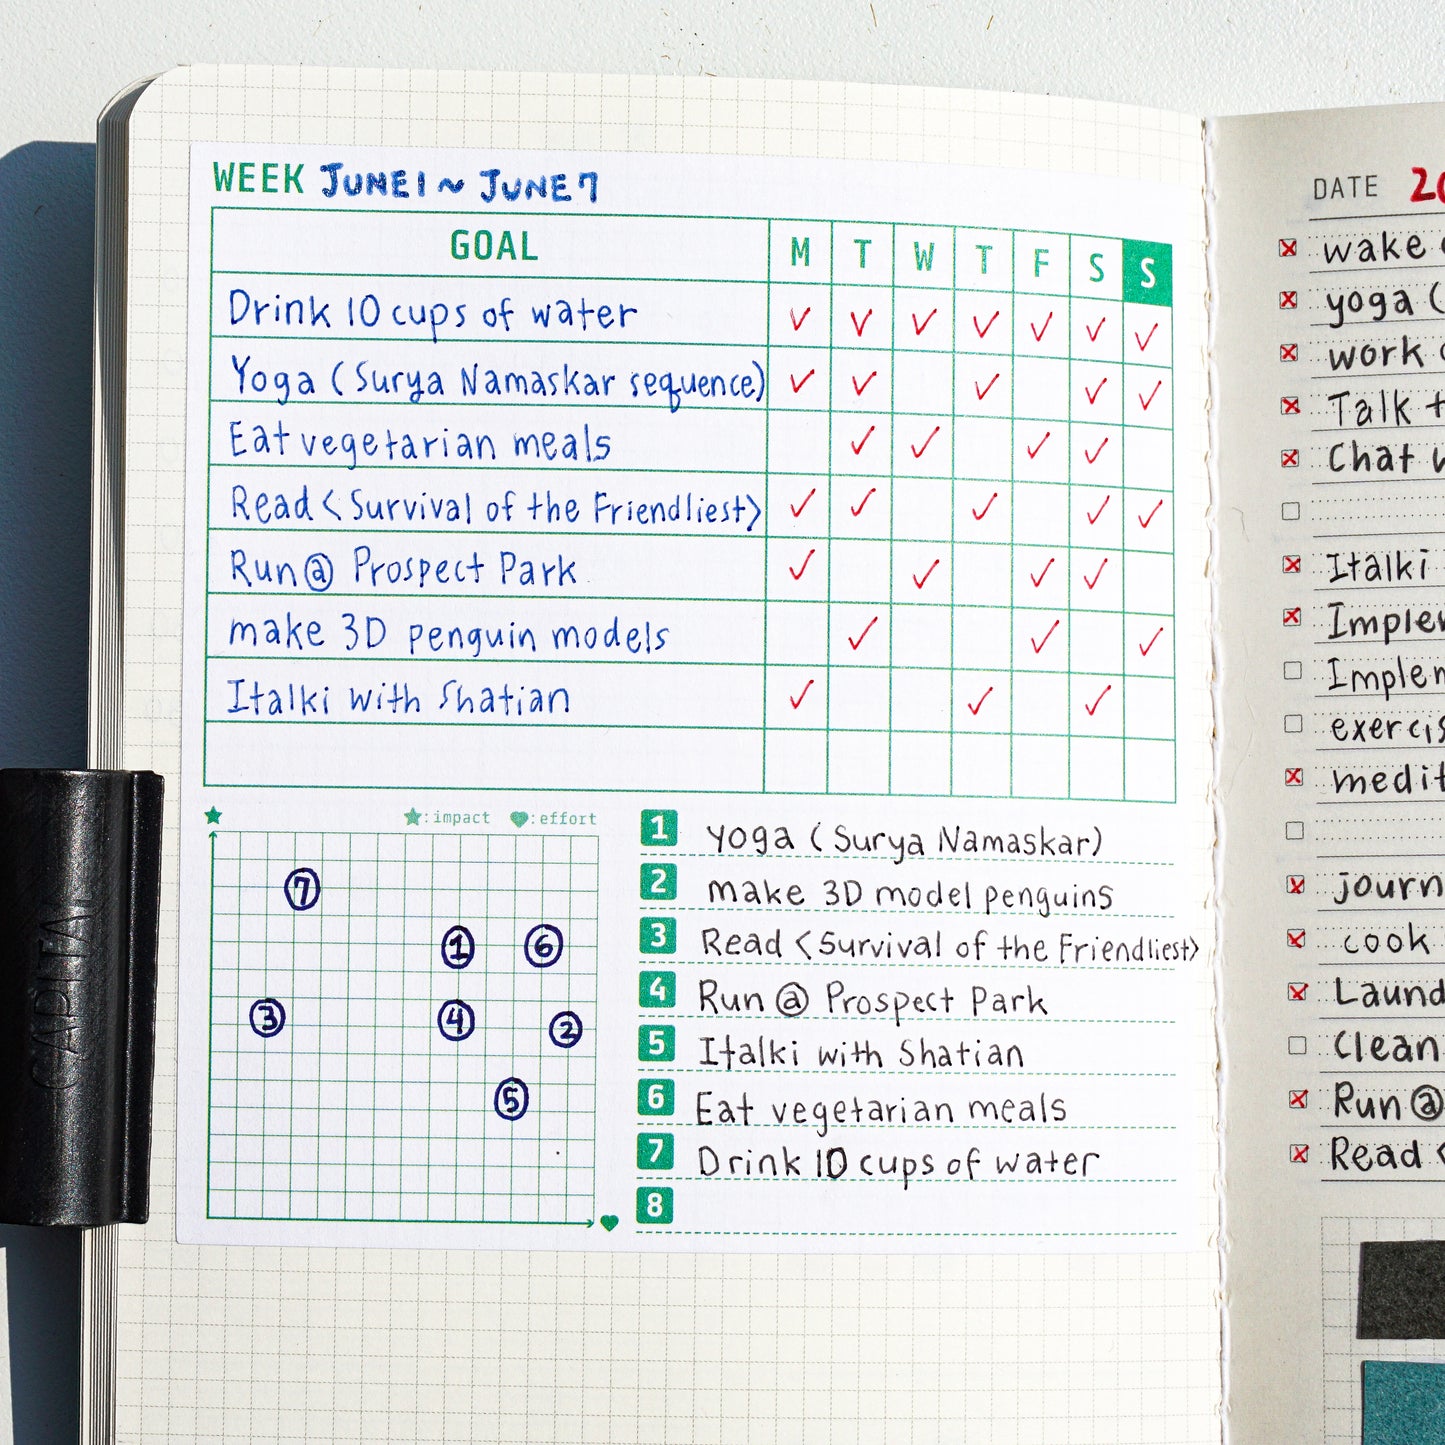 WEEK JUNE 1 ~ JUNE 7
GOAL M T W T F S S
Drink 10 cups of water ✓ ✓ ✓ ✓ ✓ ✓ ✓
Yoga (Surya Namaskar sequence) ✓ ✓ ✓ ✓ ✓
Eat vegetarian meals ✓ ✓ ✓ ✓
Read <Survival of the Friendliest> ✓ ✓ ✓ ✓ ✓
Run @ Prospect Park ✓ ✓ ✓ ✓
make 3D penguin models ✓ ✓ ✓
Italki with Shatian ✓ ✓ ✓
★:impact ♥:effort
7
1 6
3 4 2
5
1 Yoga (Surya Namaskar)
2 make 3D model penguins
3 Read <Survival of the Friendliest>
4 Run @ Prospect Park
5 Italki with Shatian
6 Eat vegetarian meals
7 Drink 10 cups of water
8
CAPITAL
DATE 20
wake
yoga (
work
Talk
Chat
Italki
Implem
Implem
exercis
medit
journ
cook
Laund
Clean
Run @
Read <